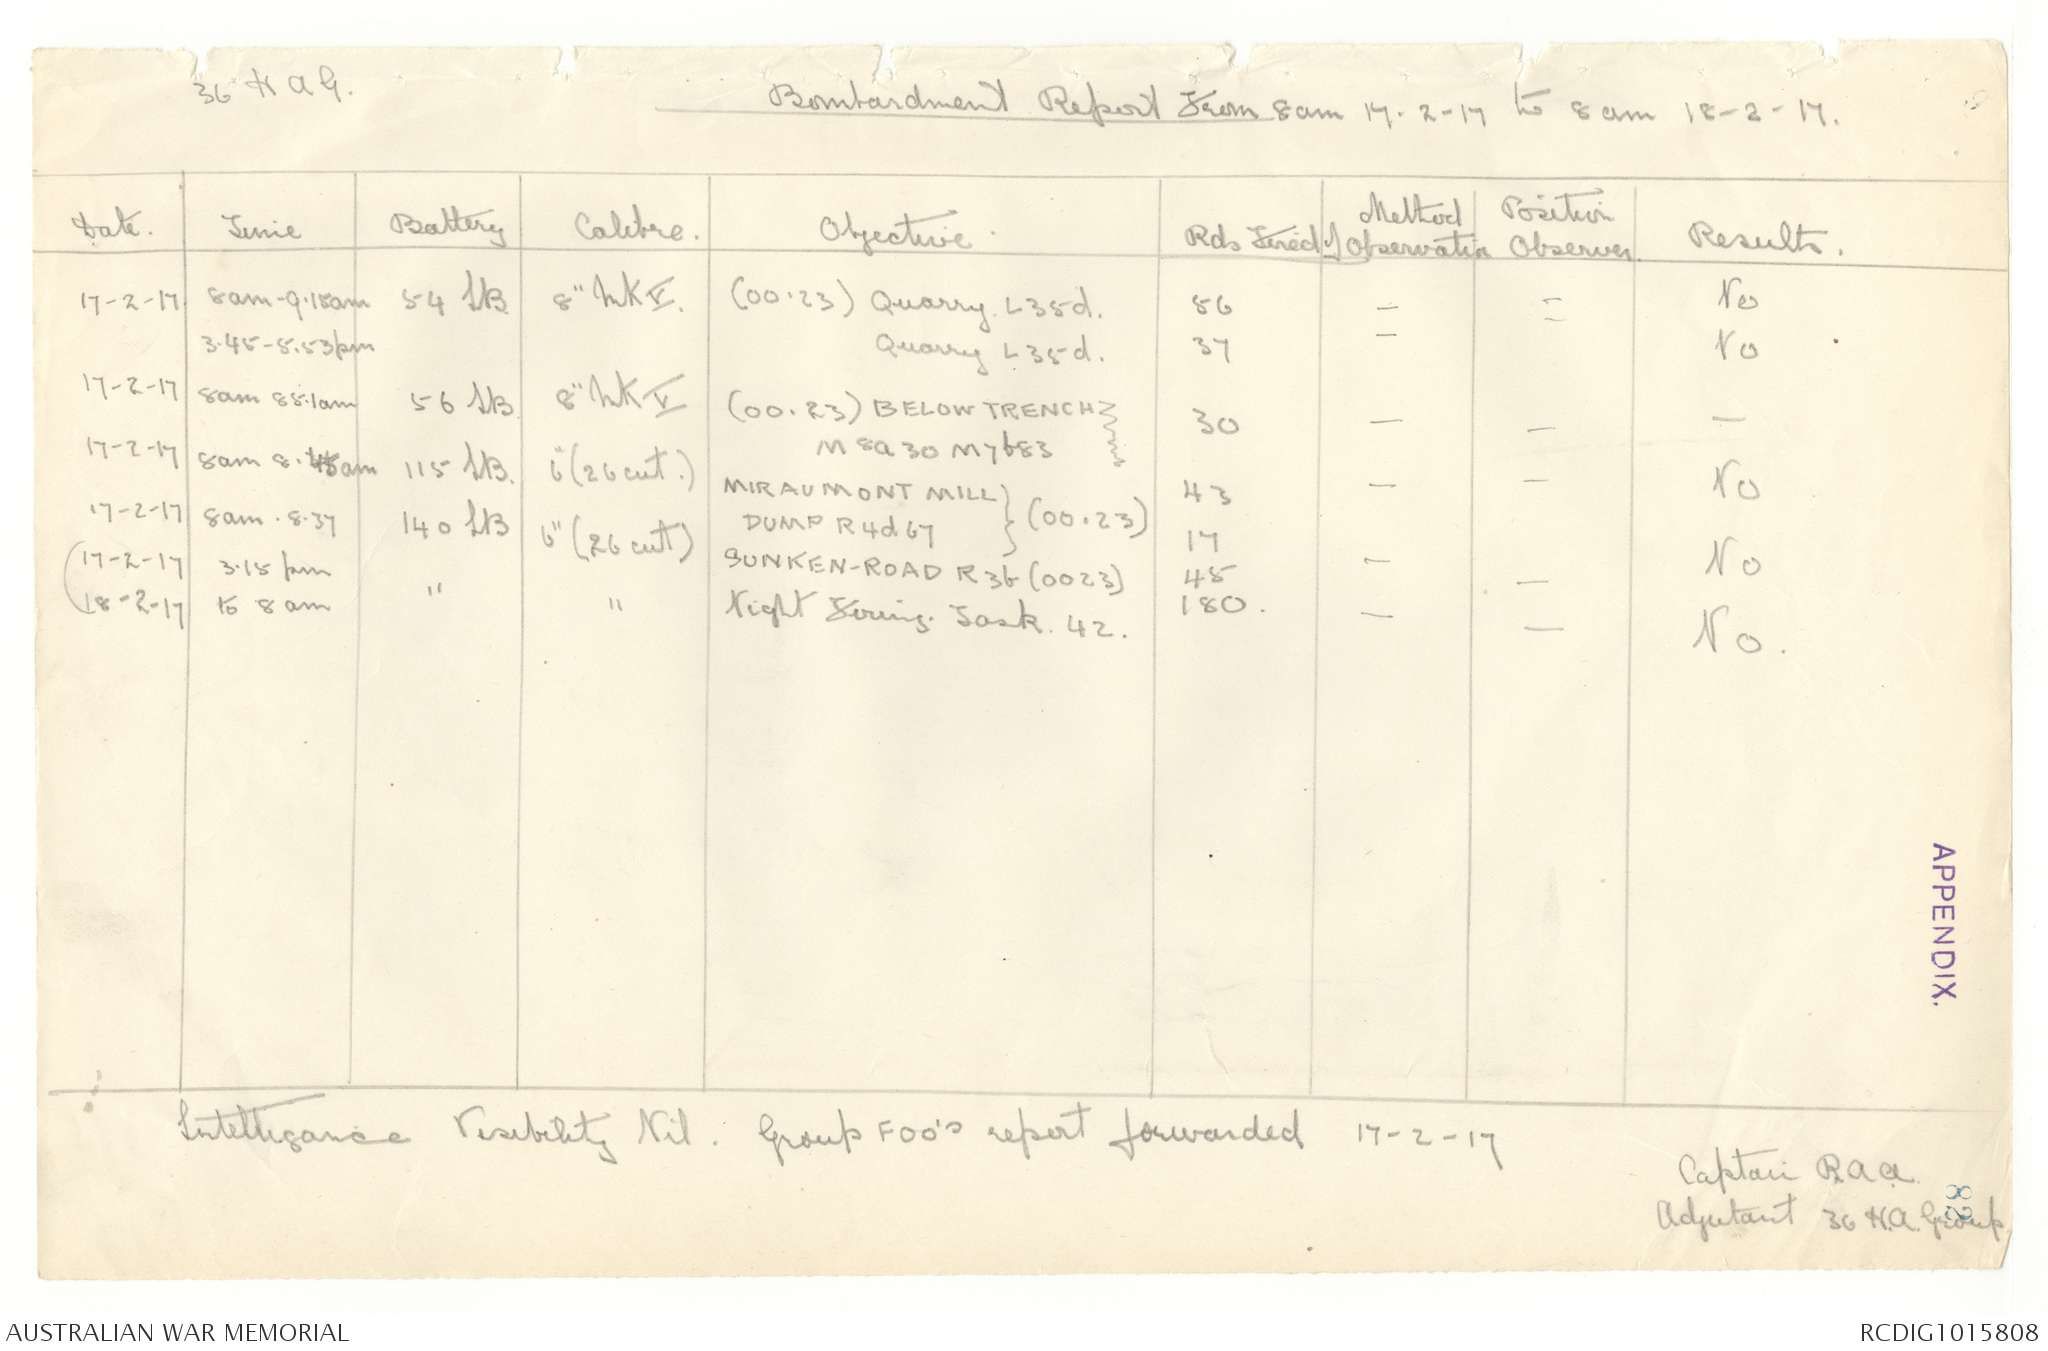 36 H A G.
Bombardment Report From 8am 17-2-17 to 8am 18-2-17.
Date. Time Battery Calibre. Objective Rds Fired Method of Observation Position Observer Results.
17-2-17 8am-9.15am 54 SB 8" MK V. (00.23) Quarry L35d. 56 — = No
3.45-5.53pm Quarry L35d. 37 — No
17-2-17 8am 8.51am 56 SB 8" MK V (00.23) BELOW TRENCH 30 — — —
M8a30 M7b83
17-2-17 8am 8.45am 115 SB. 6" (26 cwt.) MIRAUMONT MILL } (00.23) 43 — — No
17-2-17 8am.8.37 140 SB 6" (26 cwt) DUMP R4d67 17
(17-2-17 3.15 pm SUNKEN-ROAD R3b (0023) 45 — — No
18-2-17 to 8am " " Night Firing. Task. 42. 180. — — No.
Intelligence Visibility Nil. Group FOO's report forwarded 17-2-17
Captain RAA.
Adjutant 36 H.A. Group
APPENDIX.
82
AUSTRALIAN WAR MEMORIAL
RCDIG1015808